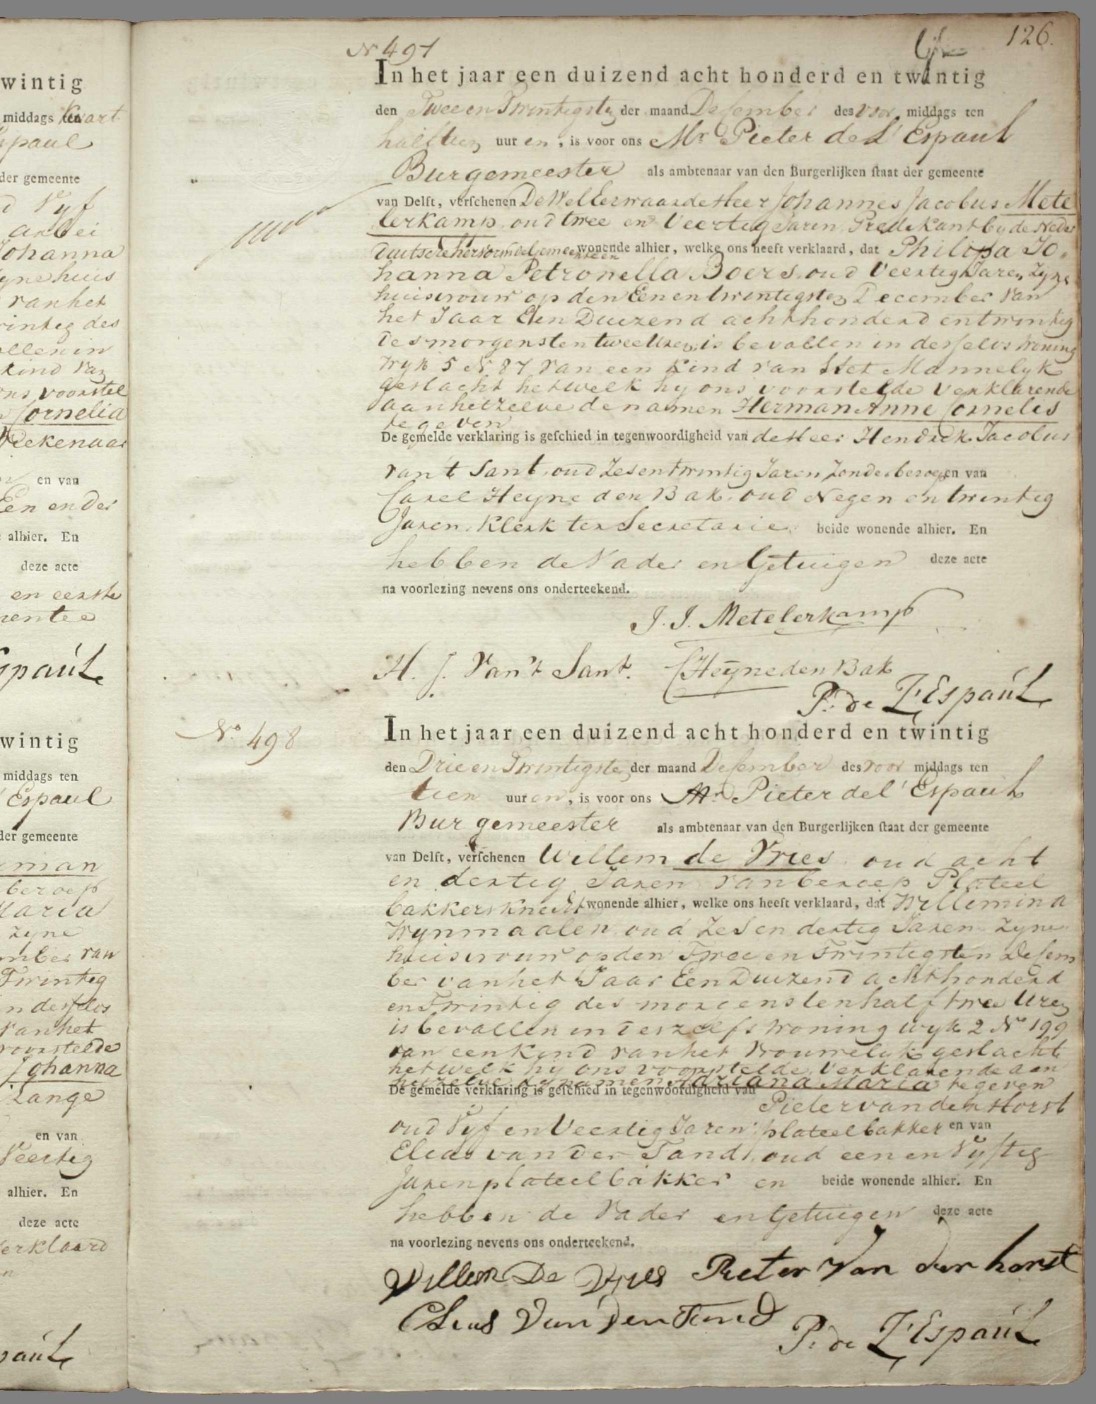 wintig
middags ten kwart
spaul
der gemeente
d Vyf
arbei
Johanna
zyne huis
van het
wintig des
vallen in
kind van
ons voorstel
Cornelia
Wekenaar
en van
Een en der
alhier. En
deze acte
en eerste
mentee
Espaúl
wintig
middags ten
l'Espaul
der gemeente
man
beroep
Maria
zyne
ember van
Twintig
in derselver
van het
voorstelde
Johanna
Lange
en van
Veertig
alhier. En
deze acte
verklaard
paúl
126.
No 497
In het jaar een duizend acht honderd en twintig
den Twee en Twintigste der maand Desember des voor middags ten
half tien uur en, is voor ons Mr Pieter de l'Espaul
Burgemeester als ambtenaar van den Burgerlijken staat der gemeente
van Delft, verschenen De Wel Eerwaarde Heer Johannes Jacobus Mete
lerkamp oud twee en Veertig Jaren, Predikant by de Neder
duitsche hervormde gemeente wonende alhier, welke ons heeft verklaard, dat Philippa Jo-
hanna Petronella Boers, oud Veertig Jaren, Zyne
huisvrouw op den Een en twintigsten December van
het Jaar Een Duizend achthonderd en twintig
des morgens ten twee Uren, is bevallen in derselver Woning
Wyk 5 No 87 van een Kind van Het Mannelyk
geslacht hetwelk hy ons voorstelde Verklarende
aan hetzelve de namen Herman Anne Cornelis
te geven
De gemelde verklaring is geschied in tegenwoordigheid van de Heer Hendrik Jacobus
van't Sant, oud Zes en twintig Jaren, Zonder beroep en van
Carel Heyne den Bak, oud Negen en twintig
Jaren, Klerk ter Secretarie beide wonende alhier. En
hebben de Vader en Getuigen deze acte
na voorlezing nevens ons onderteekend.
J. J. Metelerkamp
H. J. Van't Sant. C Heyne den Bak
P. de L'Espaúl
No 498
In het jaar een duizend acht honderd en twintig
den Drie en Twintigste der maand Desember des voor middags ten
tien uur en, is voor ons Mr Pieter de l'Espaul
Burgemeester als ambtenaar van den Burgerlijken staat der gemeente
van Delft, verschenen Willem de Vries oud acht
en dertig Jaren van beroep Plateel
bakkersknecht wonende alhier, welke ons heeft verklaard, dat Willemina
Wynmaalen oud Zes en dertig Jaren Zyne
huisvrouw op den Twee en Twintigsten Desem
ber van het Jaar Een Duizend achthonderd
en Twintig des morgens ten half twee Uren
is bevallen in deszelfs Woning Wyk 2 No 199
van een Kind van het Vrouwelyk geslacht
hetwelk hy ons voorstelde Verklarende aan
hetzelve de namen Adriana Maria te geven
De gemelde verklaring is geschied in tegenwoordigheid van
Pieter van der Horst
oud Vyf en Veertig Jaren plateelbakker en van
Elias van der Tand, oud een en Vyftig
Jaren plateelbakker en beide wonende alhier. En
hebben de Vader en Getuigen deze acte
na voorlezing nevens ons onderteekend.
Willem De Vries Pieter Van der horst
P. de L'Espaúl